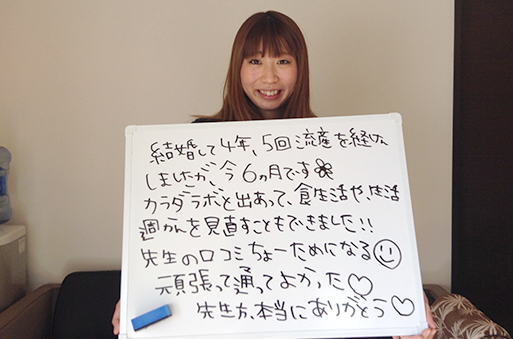 結婚して4年、5回流産を経験
しましたが、今6ヵ月です
カラダラボと出あって、食生活や、生活
週かんを見直すこともできました!!
先生の口コミちょーためになる
頑張って通ってよかった♡
先生方、本当にありがとう♡